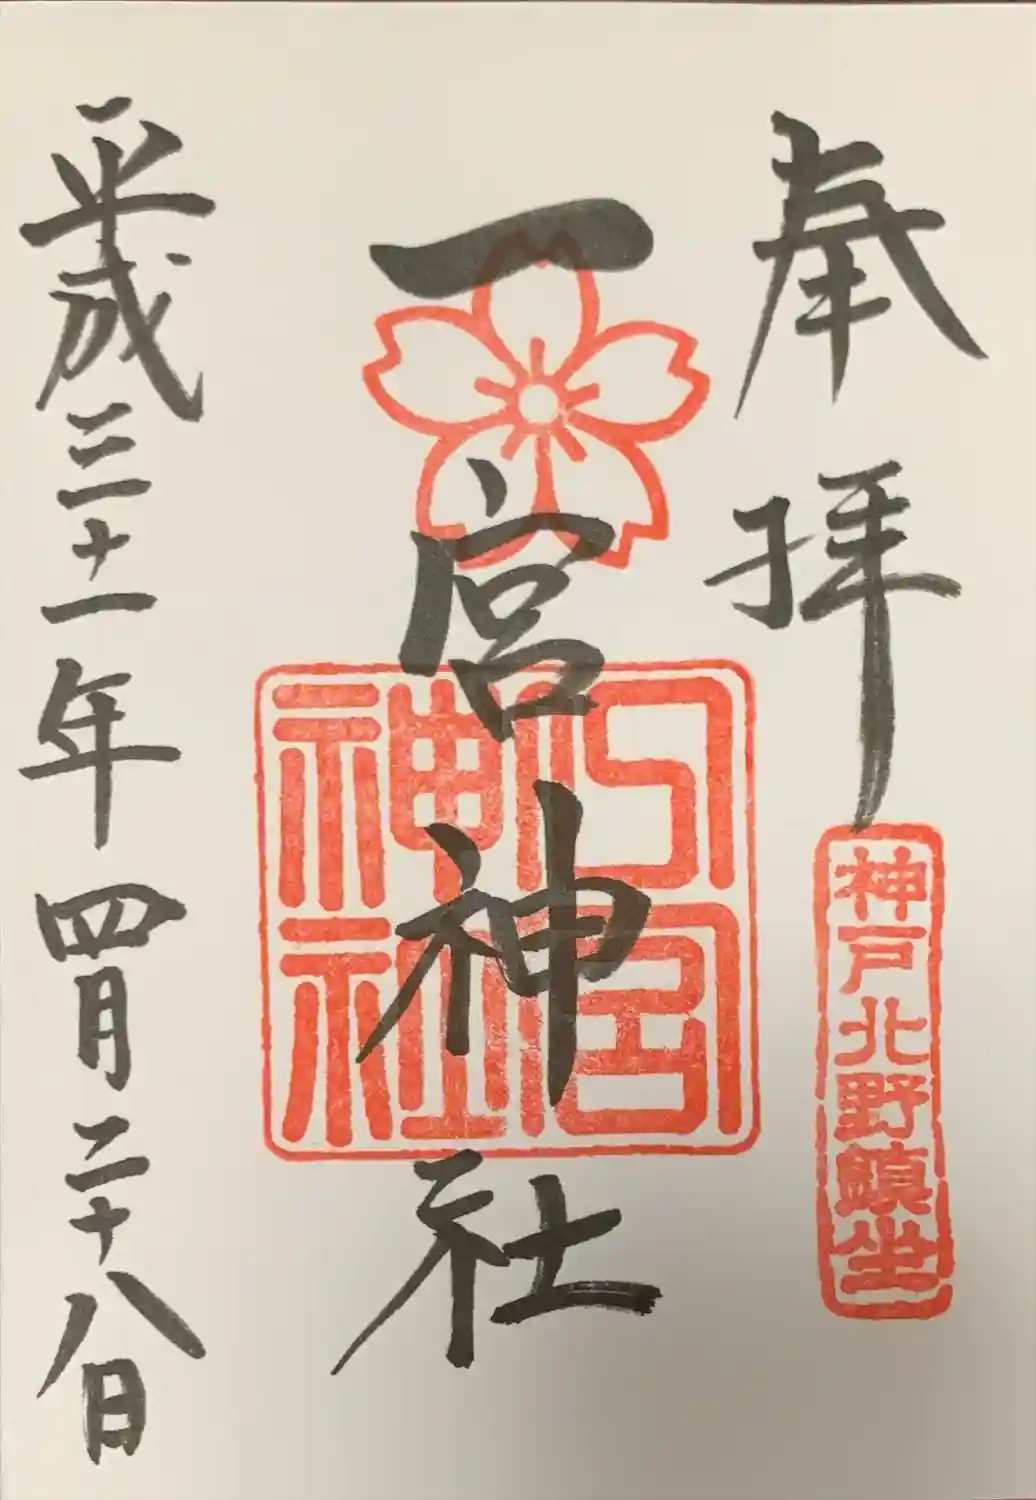 奉拝
神戸北野鎮坐
一宮神社
一宮神社
平成三十一年四月二十八日